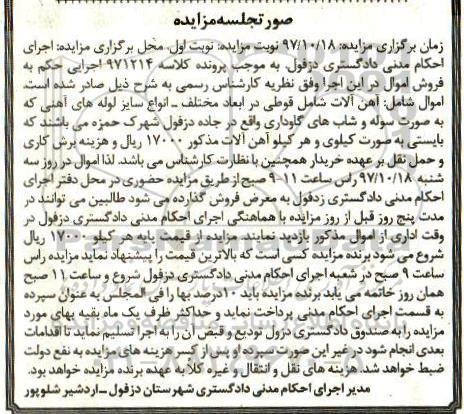 صورتجلسه مزایده
زمان برگزاری مزایده: ۹۷/۱۰/۱۸ نوبت مزایده: نوبت اول، محل برگزاری مزایده: اجرای
احکام مدنی دادگستری دزفول به موجب پرونده کلاسه ۹۷۱۲۱۴ اجرایی حکم به
فروش اموال در این اجرا وفق نظریه کارشناس رسمی به شرح ذیل صادر شده است.
اموال شامل: آهن آلات شامل قوطی در ابعاد مختلف ـ انواع سایز لوله های آهنی که
به صورت سوله و شاب های گاوداری واقع در جاده دزفول شهرک حمزه می باشند که
بایستی به صورت کیلویی و هر کیلو آهن آلات مذکور ۱۷۰۰۰ ریال و هزینه برش کاری
و حمل نقل بر عهده خریدار همچنین با نظارت کارشناس می باشد. لذا اموال در روز سه
شنبه ۹۷/۱۰/۱۸ راس ساعت ۱۱-۹ صبح از طریق مزایده حضوری در محل دفتر اجرای
احکام مدنی دادگستری زدفول به معرض فروش گذارده می شود طالبین می توانند در
مدت پنج روز قبل از روز مزایده با هماهنگی اجرای احکام مدنی دادگستری دزفول در
وقت اداری از اموال مذکور بازدید نمایند. مزایده از قیمت پایه هر کیلو ۱۷۰۰۰ ریال
شروع می شود برنده مزایده کسی است که بالاترین قیمت را پیشنهاد نماید مزایده راس
ساعت ۹ صبح در شعبه اجرای احکام مدنی دادگستری دزفول شروع و ساعت ۱۱ صبح
همان روز خاتمه می یابد برنده مزایده باید ۱۰درصد بها را فی المجلس به عنوان سپرده
به قسمت اجرای احکام مدنی پرداخت نماید و حداکثر ظرف یک ماه بقیه بهای مورد
مزایده را به صندوق دادگستری دزول تودیع و قبض آن را به اجرا تسلیم نماید تا اقدامات
بعدی انجام شود در غیر این صورت سپرده او پس از کسر هزینه های مزایده به نفع دولت
ضبط خواهد شد. هزینه های نقل و انتقال و غیره کلاً به عهده برنده مزایده خواهد بود.
مدیر اجرای احکام مدنی دادگستری شهرستان دزفول ـ اردشیر شلوپور